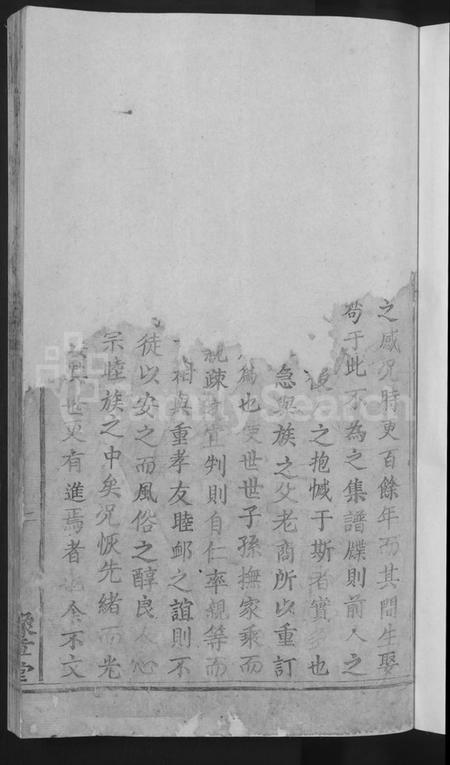 之感况時更百餘年而其間生娶
苟于此不為之集譜牒則前人之
之抱憾于斯者實多也
急與族之父老商所以重訂
為也使世世子孫撫家乘而
親疎判則自仁率親等而
相與重孝友睦鄰之誼則不
徒以安之而風俗之醇良人心
宗睦族之中矣况恢先緒而光
也更有進焉者今不文
FamilySearch